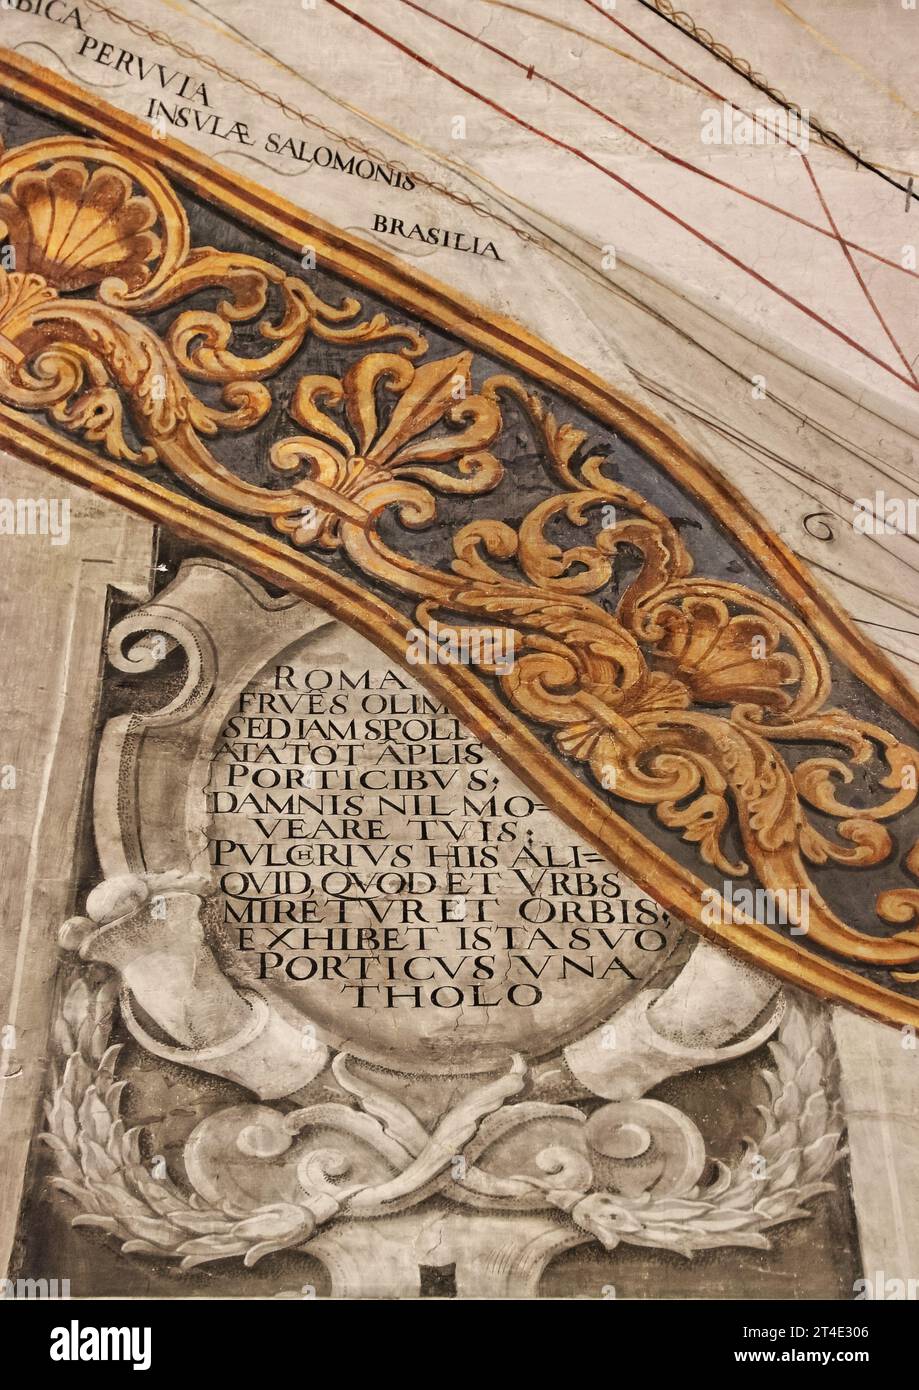 BICA
PERVVIA
INSVLÆ SALOMONIS
BRASILIA
6
ROMA
FRVĒS OLIM
SED IAM SPOLI
ATA TOT APLIS
PORTICIBVS;
DAMNIS NIL MO=
VEARE TVIS;
PVLCHRIVS HIS ALI=
QVID, QVOD ET VRBS
MIRETVR ET ORBIS;
EXHIBET ISTA SVO
PORTICVS VNA
THOLO
alamy
Image ID: 2T4E306
www.alamy.com